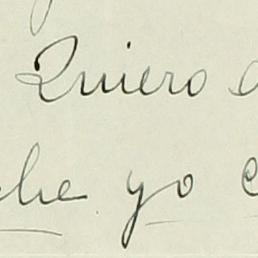 Quiero
che yo